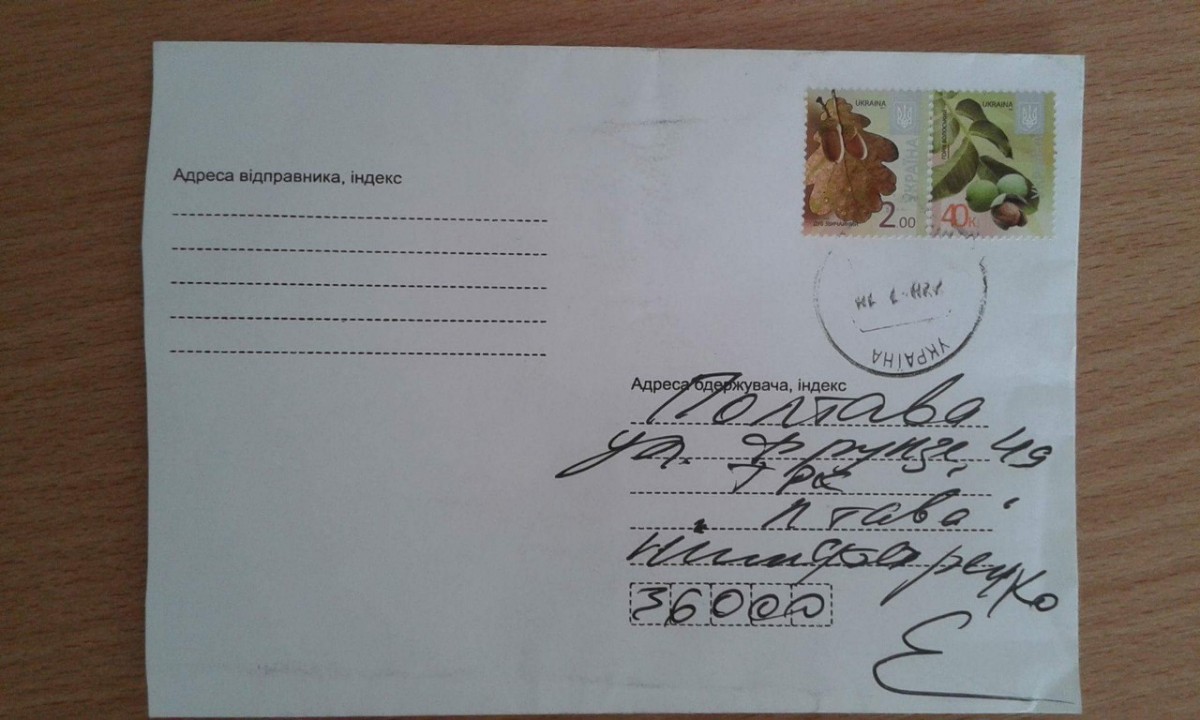 UKRAINA
УКРАЇНА
2.00
UKRAINA
40к.
Адреса відправника, індекс
УКРАЇНА
Адреса одержувача, індекс
Полтава
ул. Фрунзе, 49
ТРК
"Лтава"
36000
Е